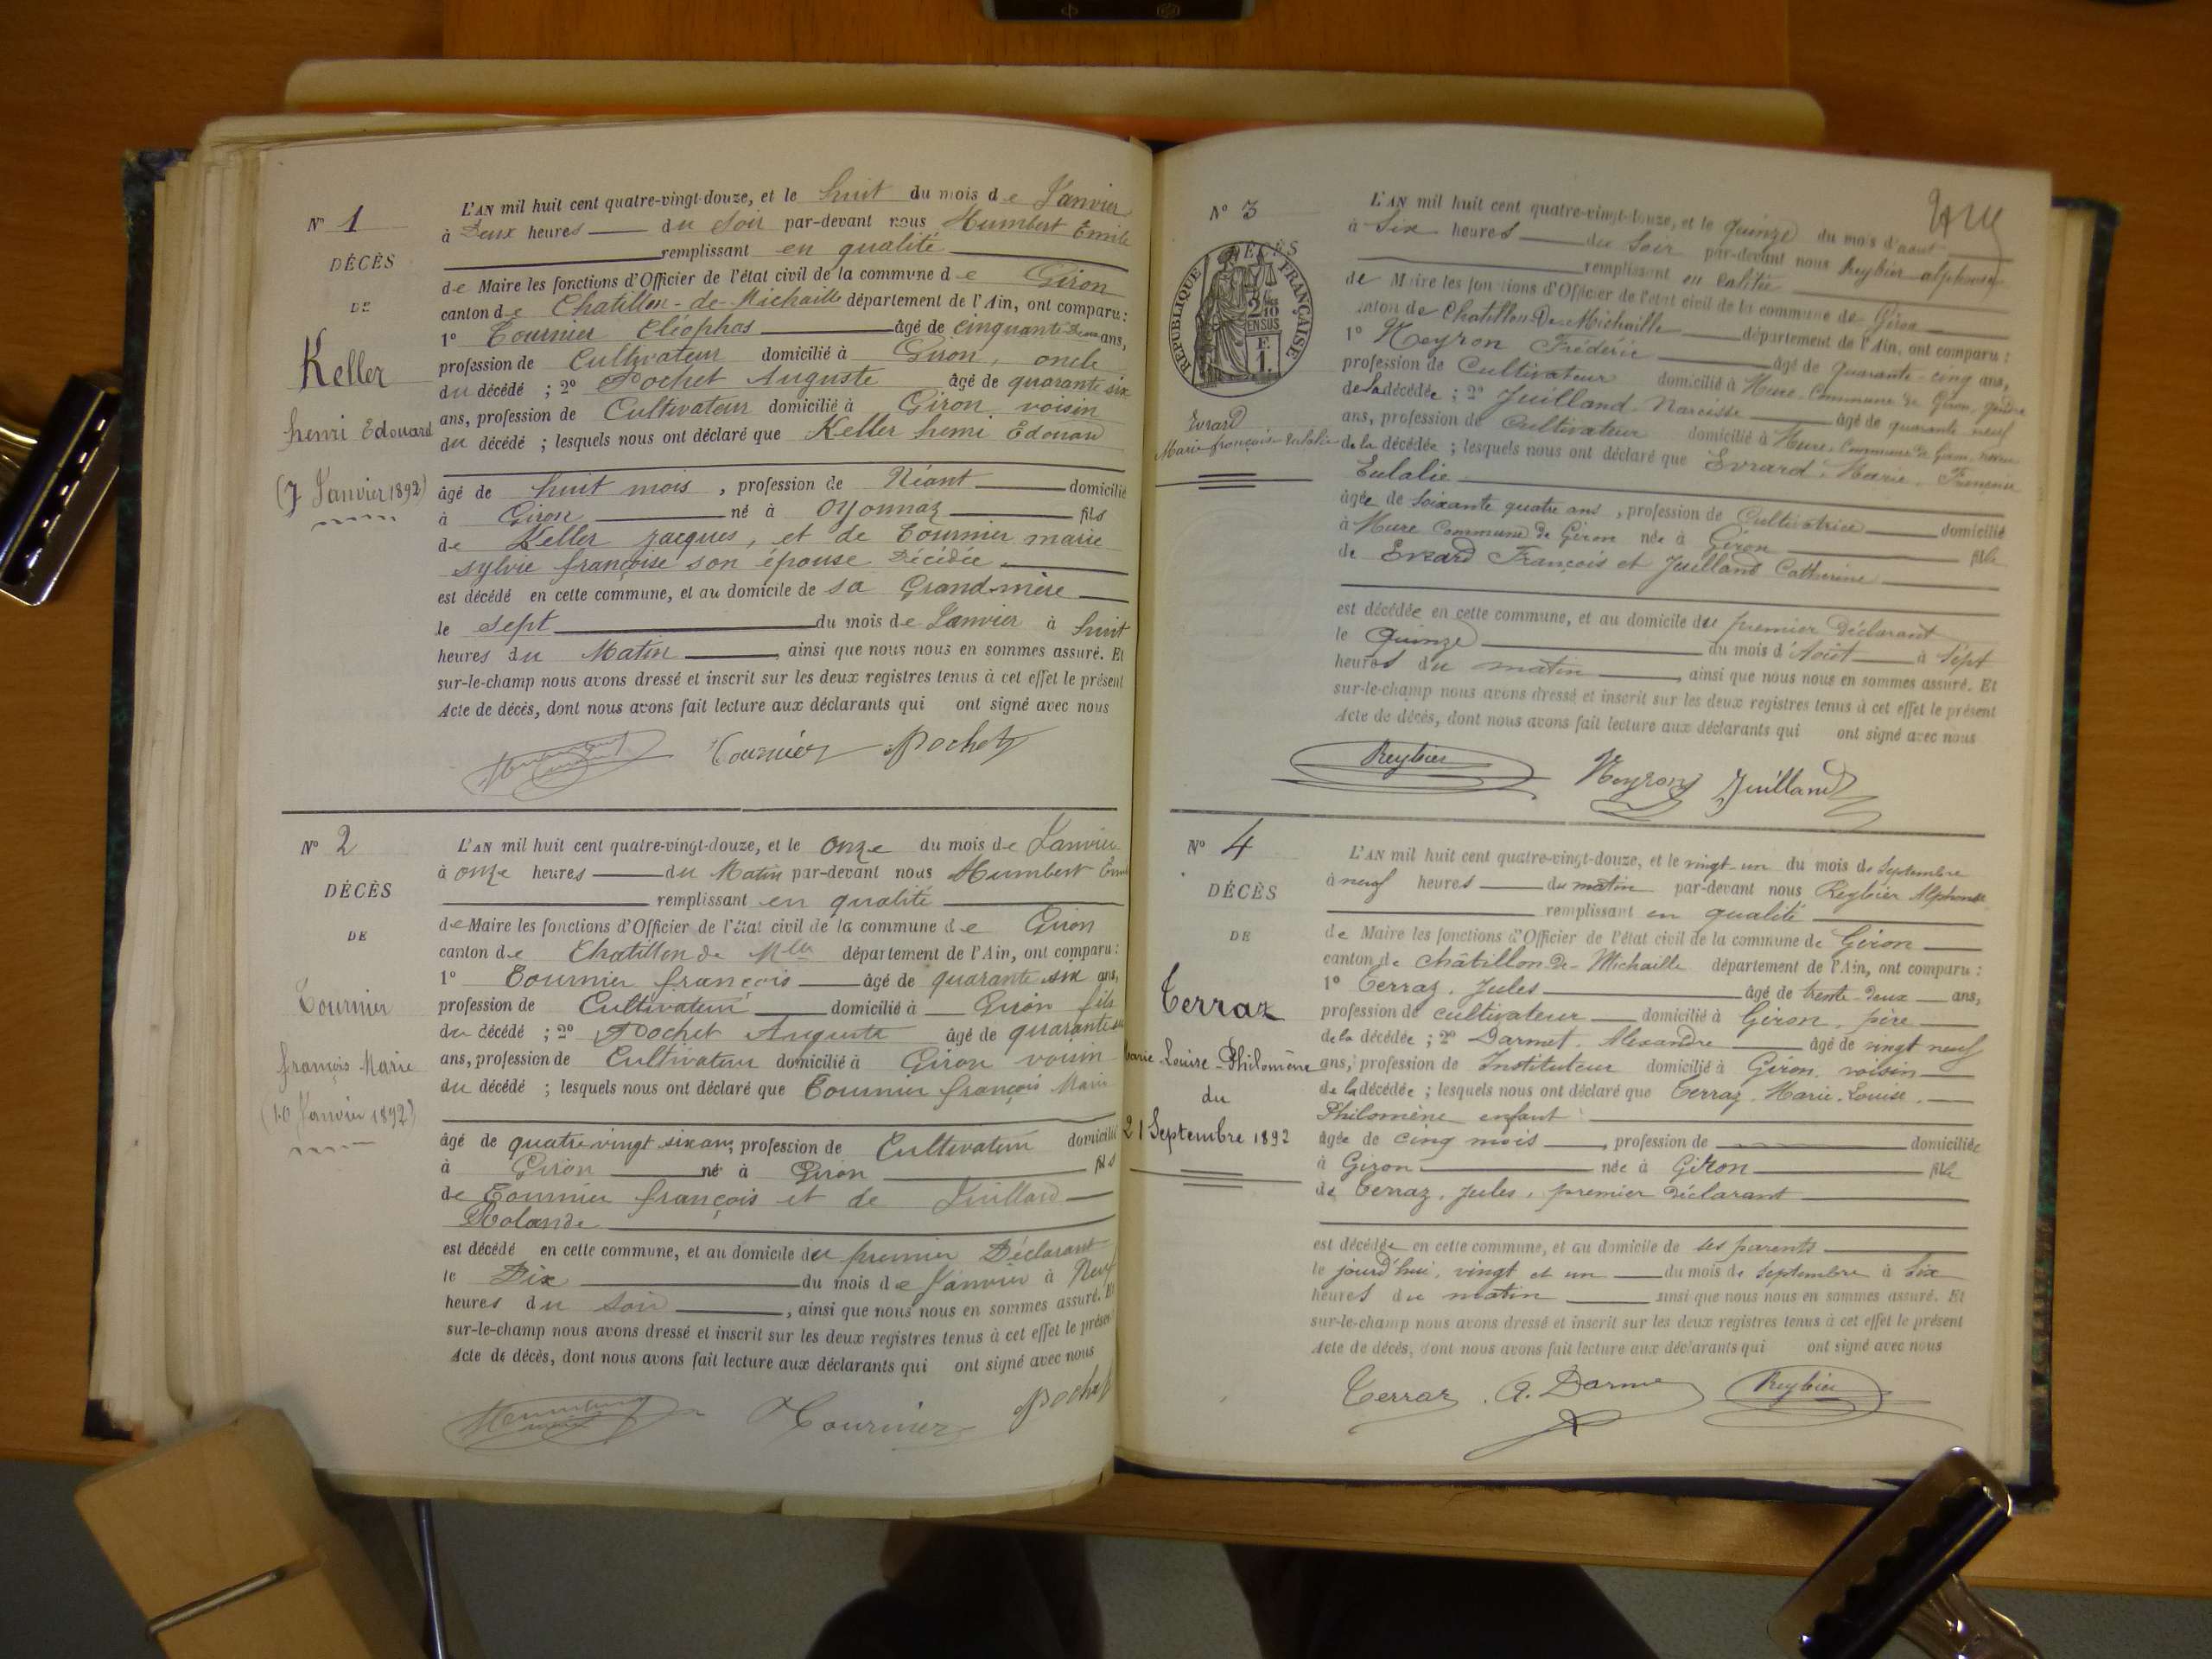 Nº 1
DÉCÈS
DE
Keller
henri Edouard
(7 Janvier 1892)
L'AN mil huit cent quatre-vingt-douze, et le huit du mois de Janvier
à Deux heures du Soir par-devant nous Humbert Emile
remplissant en qualité
de Maire les fonctions d'Officier de l'état civil de la commune de Giron
canton de Chatillon-de-Michaille département de l'Ain, ont comparu :
1º Tournier Cléophas âgé de cinquante Deux ans,
profession de Cultivateur domicilié à Giron, oncle
du décédé ; 2º Pochet Auguste âgé de quarante six
ans, profession de Cultivateur domicilié à Giron voisin
du décédé ; lesquels nous ont déclaré que Keller henri Edouard
âgé de huit mois, profession de Néant domicilié
à Giron né à Oyonnaz fils
de Keller jacques, et de Tournier marie
sylvie françoise son épouse Décédée
est décédé en cette commune, et au domicile de sa Grand-mère
le sept du mois de Janvier à huit
heures du Matin, ainsi que nous nous en sommes assuré. Et
sur-le-champ nous avons dressé et inscrit sur les deux registres tenus à cet effet le présent
Acte de décès, dont nous avons fait lecture aux déclarants qui ont signé avec nous
Tournier Pochet
Nº 2
DÉCÈS
DE
Tournier
françois Marie
(10 Janvier 1892)
L'AN mil huit cent quatre-vingt-douze, et le onze du mois de Janvier
à onze heures du Matin par-devant nous Humbert Emile
remplissant en qualité
de Maire les fonctions d'Officier de l'état civil de la commune de Giron
canton de Chatillon de Mlle département de l'Ain, ont comparu :
1º Tournier françois âgé de quarante six ans,
profession de Cultivateur domicilié à Giron fils
du décédé ; 2º Pochet Auguste âgé de quarante six
ans, profession de Cultivateur domicilié à Giron voisin
du décédé ; lesquels nous ont déclaré que Tournier françois Marie
âgé de quatre vingt six ans, profession de Cultivateur domicilié
à Giron né à Giron fils
de Tournier françois et de Juilland
Rolande
est décédé en cette commune, et au domicile du premier Déclarant
le Dix du mois de Janvier à Neuf
heures du soir, ainsi que nous nous en sommes assuré. Et
sur-le-champ nous avons dressé et inscrit sur les deux registres tenus à cet effet le présent
Acte de décès, dont nous avons fait lecture aux déclarants qui ont signé avec nous
Tournier Pochet
Nº 3
DÉCÈS
RÉPUBLIQUE FRANÇAISE
Evrard
Marie françoise Eulalie
L'AN mil huit cent quatre-vingt-douze, et le quinze du mois d'aout
à Six heures du Soir par-devant nous Reybier alphonse
remplissant en calitée
de Maire les fonctions d'Officier de l'état civil de la commune de Giron
canton de Chatillon De Michaille département de l'Ain, ont comparu :
1º Neyron Frédéric âgé de Quarante-cinq ans,
profession de Cultivateur domicilié à Mure Commune de Giron, gendre
de la décédée ; 2º Juilland Narcisse âgé de quarante neuf
ans, profession de Cultivateur domicilié à Mure, Commune de Giron, neveu
de la décédée ; lesquels nous ont déclaré que Evrard, Marie, Françoise
Eulalie
âgée de soixante quatre ans, profession de Cultivatrice domicilié
à Mure Commune de Giron née à Giron fille
de Evrard François et Juilland Catherine
est décédée en cette commune, et au domicile du premier Déclarant
le Quinze du mois d'Aôut à Sépt
heures du matin, ainsi que nous nous en sommes assuré. Et
sur-le-champ nous avons dressé et inscrit sur les deux registres tenus à cet effet le présent
Acte de décès, dont nous avons fait lecture aux déclarants qui ont signé avec nous
Reybier Neyron Juilland
Nº 4
DÉCÈS
DE
Terraz
Marie-Louise-Philomène
du
21 Septembre 1892
L'AN mil huit cent quatre-vingt-douze, et le vingt-un du mois de Septembre
à neuf heures du matin par-devant nous Reybier Alphonse
remplissant en qualité
de Maire les fonctions d'Officier de l'état civil de la commune de Giron
canton de Châtillon-de-Michaille département de l'Ain, ont comparu :
1º Terraz, Jules âgé de trente-deux ans,
profession de cultivateur domicilié à Giron, père
de la décédée ; 2º Darmet, Alexandre âgé de vingt neuf
ans, profession de Instituteur domicilié à Giron, voisin
de la décédée ; lesquels nous ont déclaré que Terraz, Marie, Louise,
Philomène enfant
âgée de cinq mois, profession de domiciliée
à Giron née à Giron fille
de Terraz, Jules, premier déclarant
est décédée en cette commune, et au domicile de ses parents
le jourd'hui, vingt et un du mois de Septembre à six
heures du matin ainsi que nous nous en sommes assuré. Et
sur-le-champ nous avons dressé et inscrit sur les deux registres tenus à cet effet le présent
Acte de décès, dont nous avons fait lecture aux déclarants qui ont signé avec nous
Terraz A. Darmet Reybier